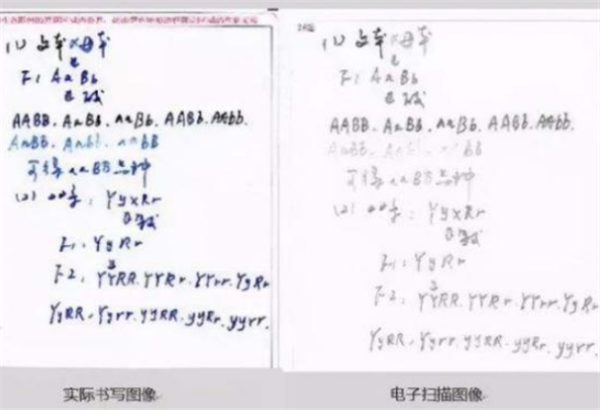 (1) 父本×母本
F1 AaBb
AABB. AaBb. aaBb. AABb. AAbb.
AaBB. Aabb. aaBB
可得aaBB品种
(2) YyxRr
F1: YyRr
F2: YYRR. YYRr. YYrr. YyRr
YyRR. Yyrr. yyRR. yyRr. yyrr.
实际书写图像
(1) 父本×母本
F1 AaBb
AABB. AaBb. aaBb. AABb. AAbb.
可得aaBB品种
(2) YyxRr
F1: YyRr
F2: YYRR. YYRr. YYrr. YyRr
YyRR. Yyrr. yyRR. yyRr. yyrr.
电子扫描图像